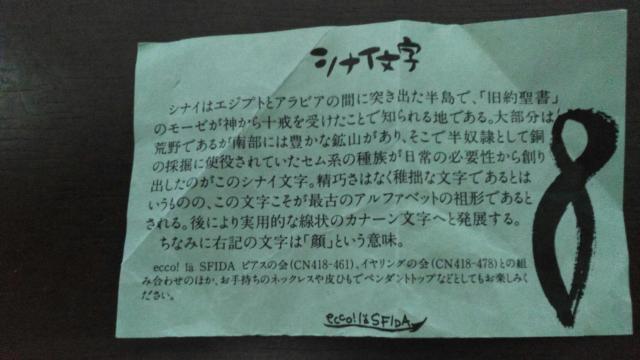 シナイ文字
シナイはエジプトとアラビアの間に突き出た半島で、「旧約聖書」
のモーゼが神から十戒を受けたことで知られる地である。大部分は
荒野であるが南部には豊かな鉱山があり、そこで半奴隷として銅
の採掘に使役されていたセム系の種族が日常の必要性から創り
出したのがこのシナイ文字。精巧さはなく稚拙な文字であるとは
いうものの、この文字こそが最古のアルファベットの祖形であると
される。後により実用的な線状のカナーン文字へと発展する。
ちなみに右記の文字は「顔」という意味。
ecco! la SFIDA ピアスの会(CN418-461)、イヤリングの会(CN418-478)との組
み合わせのほか、お手持ちのネックレスや皮ひもでペンダントトップなどとしてもお楽しみく
ださい。
ecco! la SFIDA